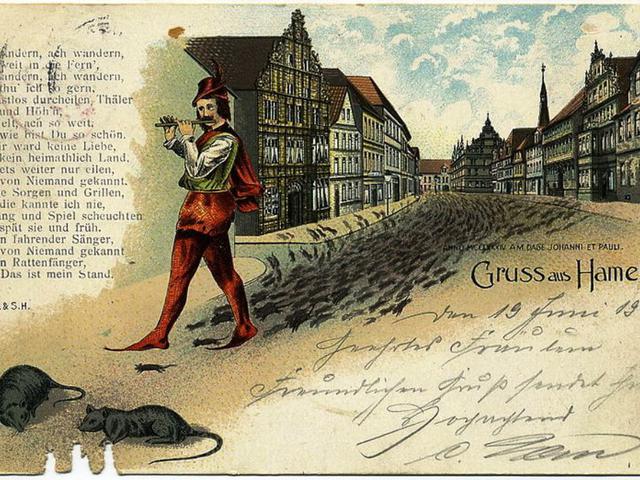 andern, ach wandern,
weit in die Fern',
andern, ach wandern,
thu' ich so gern,
stlos durcheilen, Thäler
und Höh'n,
elt, ach so weit,
wie bist Du so schön.
ir ward keine Liebe,
kein heimathlich Land,
ets weiter nur eilen,
von Niemand gekannt.
e Sorgen und Grillen,
die kannte ich nie,
ang und Spiel scheuchten
spät sie und früh.
n fahrender Sänger,
von Niemand gekannt
n Ratenfänger,
Das ist mein Stand.
& S.H.
ANNO MCCLXXXIV AM DAGE JOHANNI ET PAULI.
Gruss aus Hame
den 19 Juni 19
Geehrtes Fräulein
Freundlichen Gruß sendet
Hochachtend